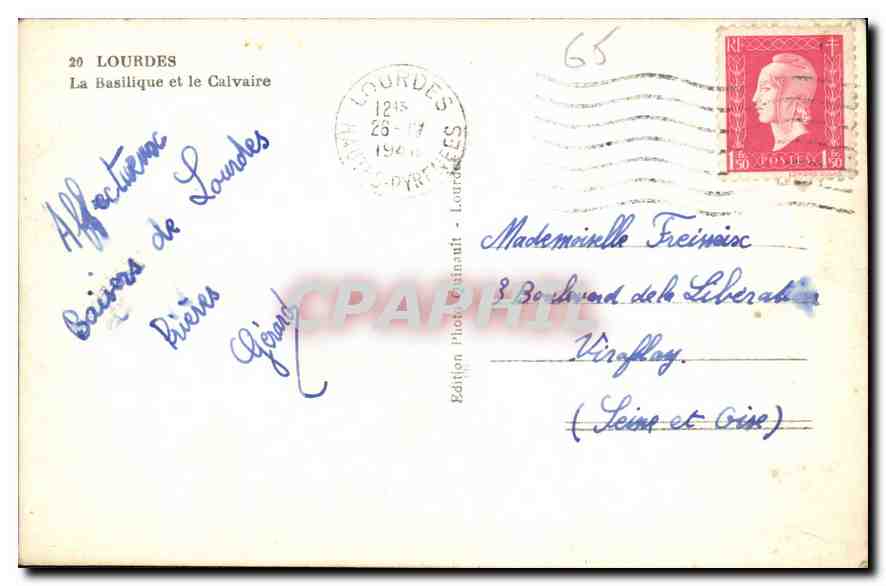 20 LOURDES
La Basilique et le Calvaire
65
LOURDES
12 15
26 - IV
HAUTES-PYRENEES
RF
1F50 POSTES 1F50
Affectueux
Baisers de Lourdes
Prières
Gérard
Edition Photo Guinault - Lourdes
CPAPHIL
Mademoiselle
3 Boulevard de la Libération
Viroflay
(Seine et Oise)